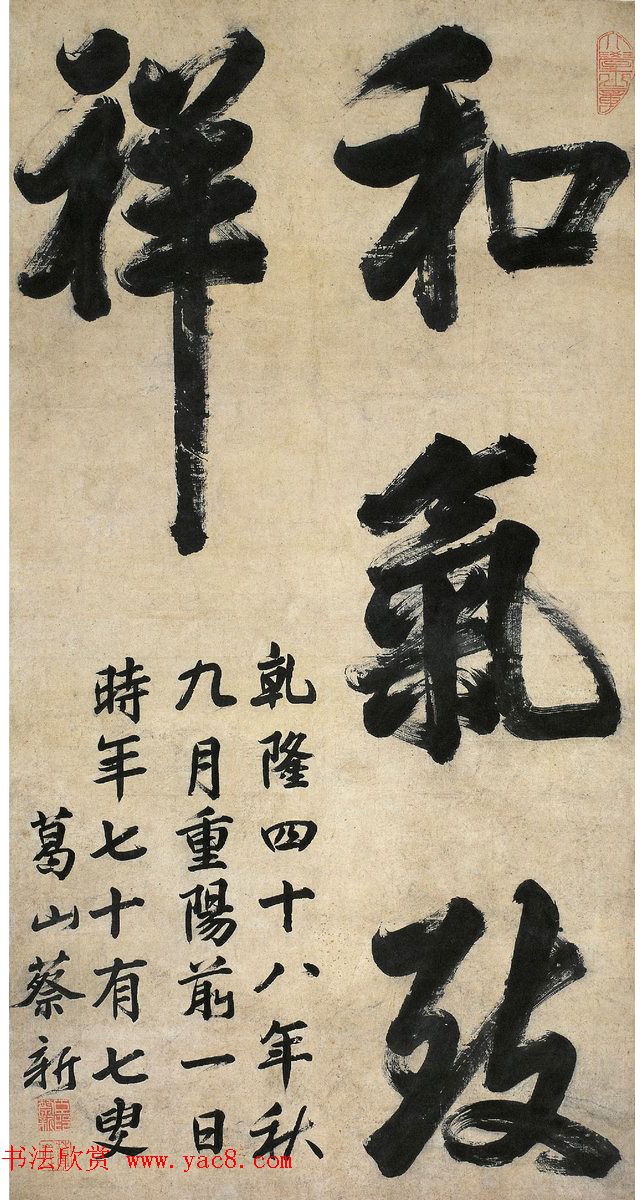 和氣致
祥
乾隆四十八年秋
九月重陽前一日
時年七十有七叟
葛山蔡新
书法欣赏 www.yac8.com